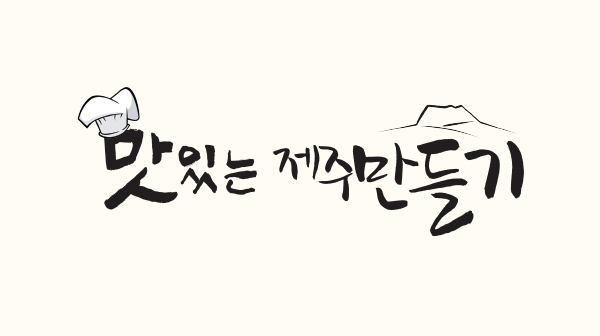 맛있는 제주만들기